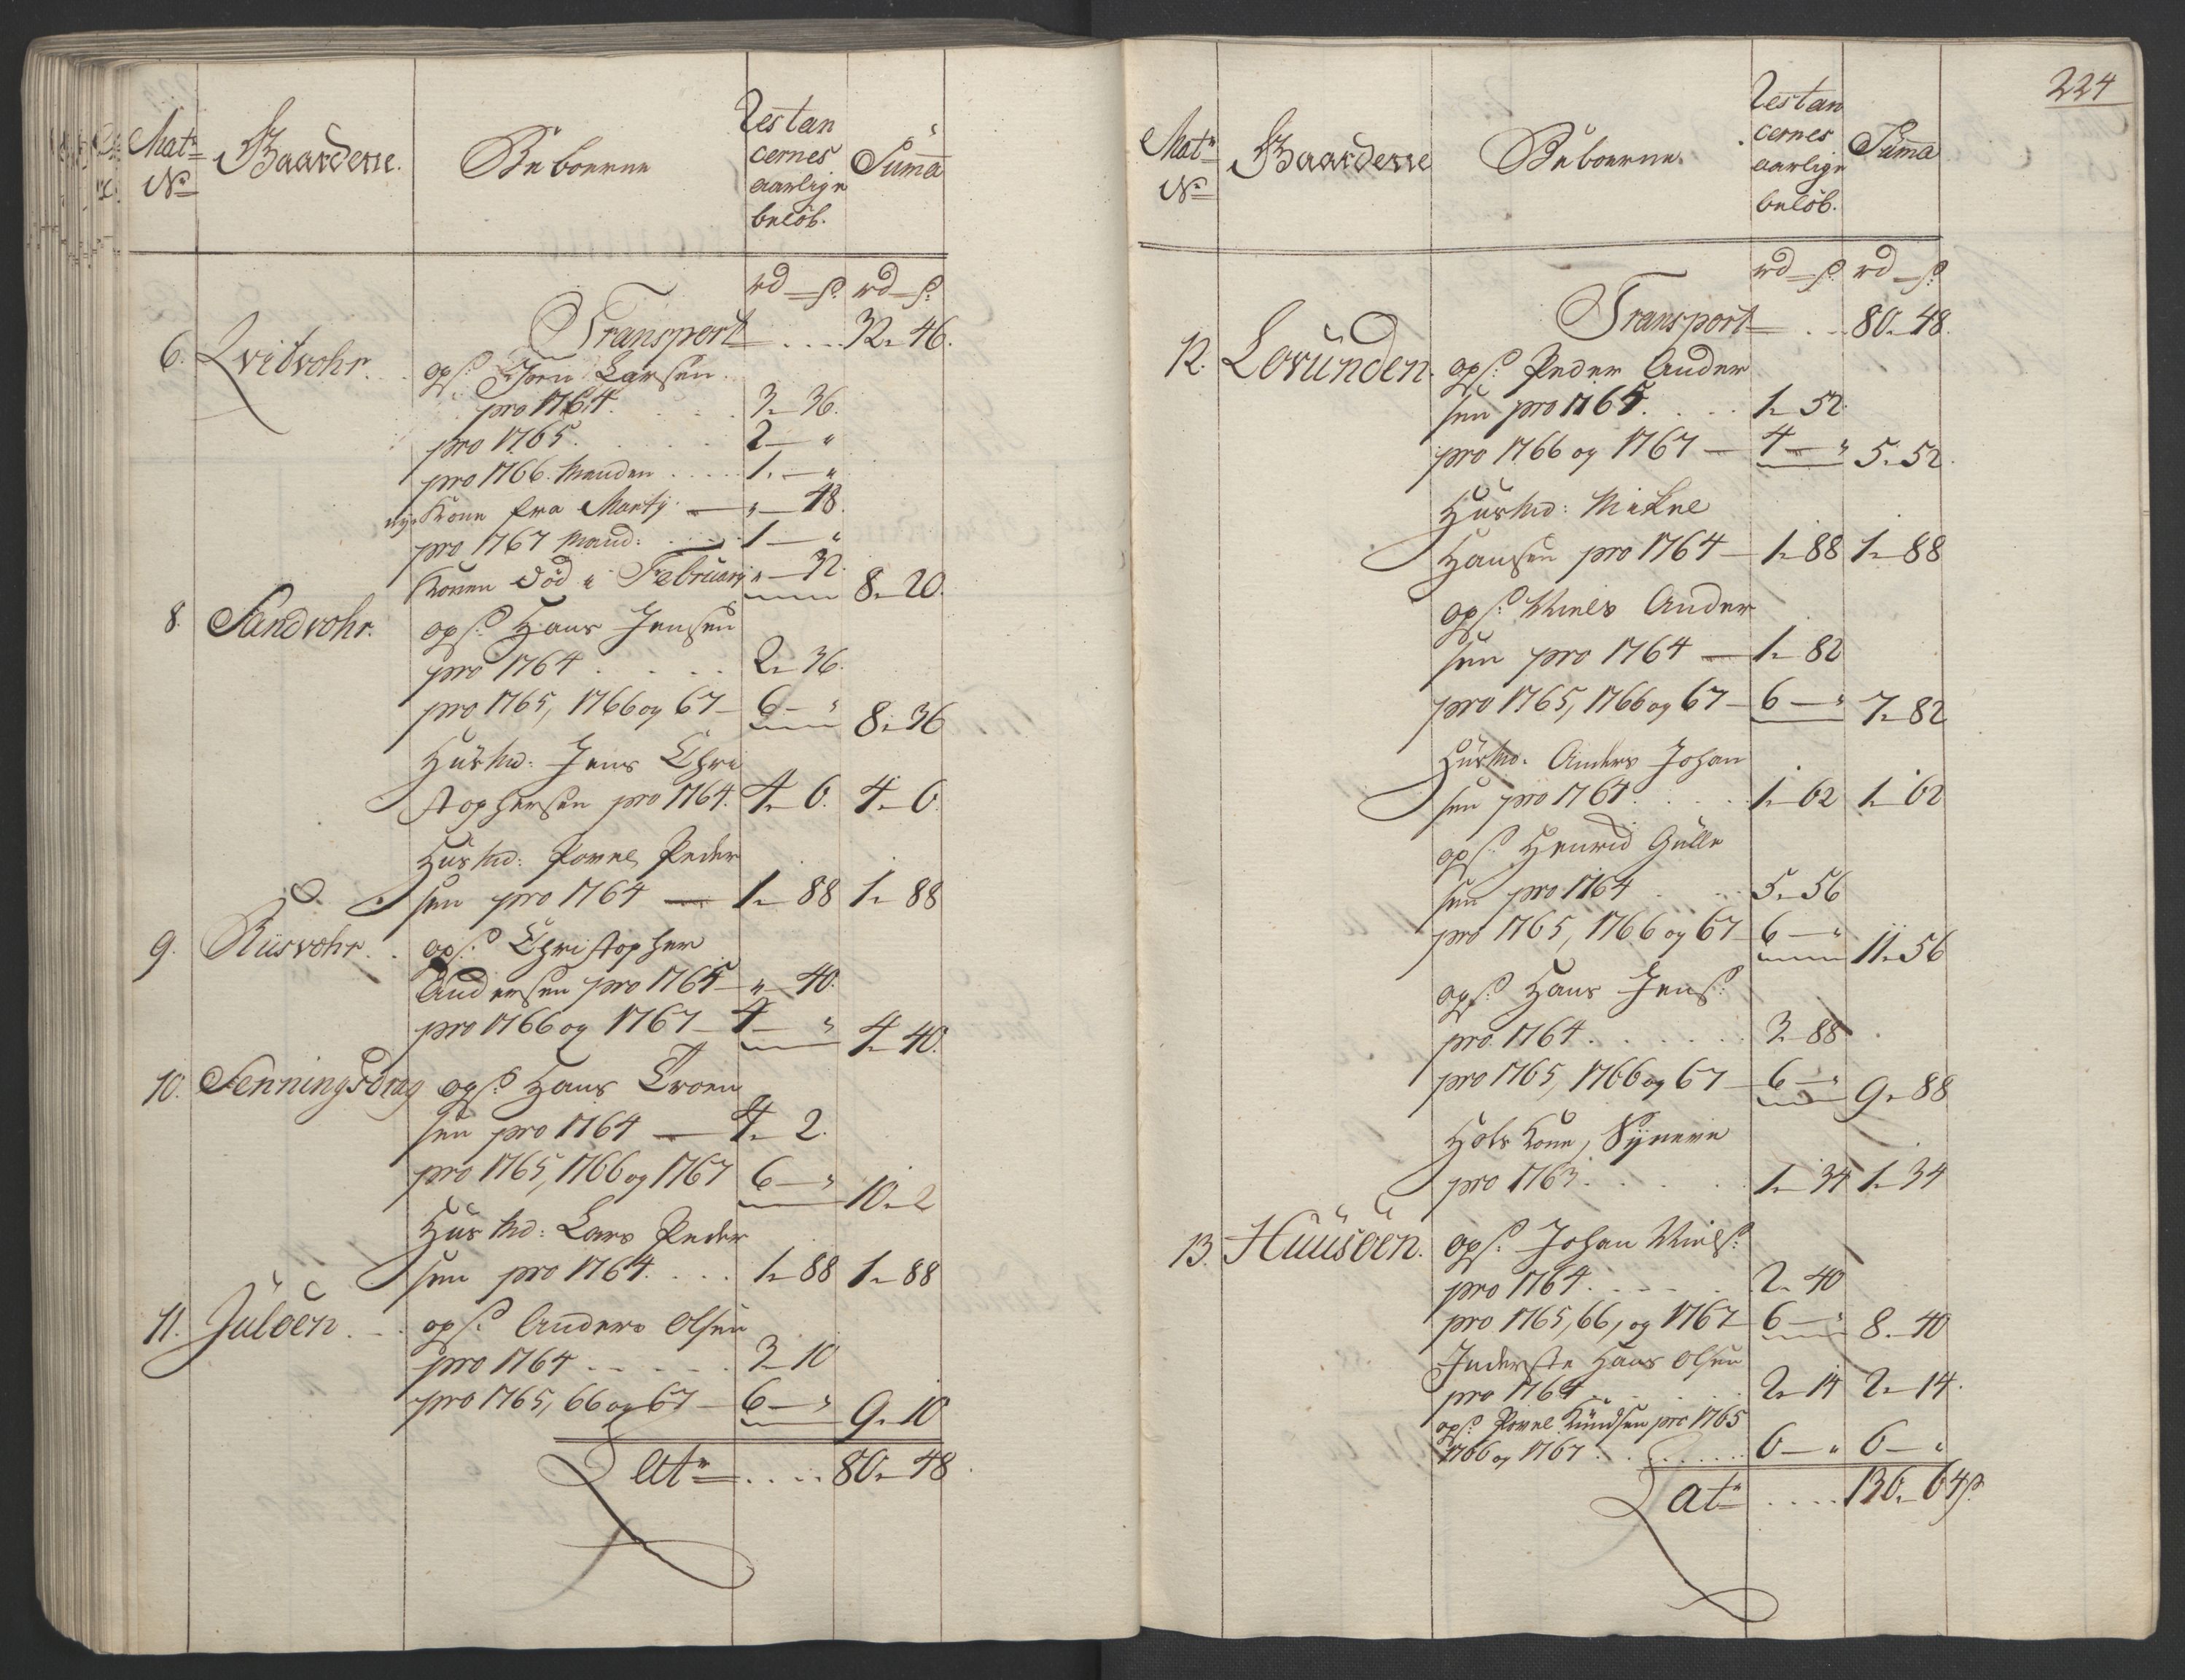 Matr
No
Gaarderne.
Beboerne
Restan
cernes
aarlige
beløb.
Suma
rd — s. rd — s.
Transport .... 32 - 46.
6. Qvitvohr. . ops: Joen Larsen.
pro 1764. . . . 3 - 36.
pro 1765. . . . 2 — "
pro 1766. Manden .... 1. — "
nye Kone fra Martij — " — 48.
pro 1767 Mand: . . . 1 — "
Konen død i Februarij " — 32. 8 - 20.
8. Sandvohr. ops: Hans Jensen
pro 1764 . . . . 2 - 36.
pro 1765, 1766 og 67 — 6 — " 8 - 36
Huusmd: Jens Chri
stophersen pro 1764. 4 - 6. 4 - 6.
Huusmd: Povel Peder
sen pro 1764 — 1 - 88 1 - 88
9. Riisvohr. . ops: Christopher
Andersen pro 1765 — " — 40.
pro 1766 og 1767 — 4 — " 4 - 40.
10. Senningsdrag ops: Hans Troen
sen pro 1764 — 4 - 2.
pro 1765, 1766 og 1767 6 — " 10 - 2
Huusmd: Lars Peder
sen pro 1764. . . . 1 - 88 1 - 88
11. Juløen . . . ops: Anders Olsen
pro 1764 . . . . . 3 - 10
pro 1765, 66 og 67 — 6 — " 9 - 10
Latr .... 80 - 48.
224
Matr
No
Gaarderne
Beboerne.
Restan
cernes
aarlige
beløb.
Suma
rd — s. rd — s.
Transport . .. 80 - 48.
12. Lovünden. ops: Peder Ander
sen pro 1765. . . . 1 - 52.
pro 1766 og 1767 — 4 — " 5 - 52.
Huusmd: Mikel
Hansen pro 1764 — 1 - 88 1 - 88
ops: Niels Ander
sen pro 1764 — 1 - 82
pro 1765, 1766 og 67 — 6 — " 7 - 82
Huusmd. Anders Johan
sen pro 1764. . . . 1 - 62 1 - 62
ops: Henrich Gülle
sen pro 1764 . . . 5 - 56
pro 1765, 1766 og 67 6 — " 11 - 56
ops: Hans Jens:
pro 1764. . . . . . 3 - 88
pro 1765, 1766 og 67 — 6 — " 9 - 88
Hols Kone, Sÿneve
pro 1763. . . . . 1 - 34 1 - 34
13. Huusøen. ops: Johan Niels:
pro 1764. . . . . 2 - 40
pro 1765, 66, og 1767 — 6 — " 8 - 40
Inderste Hans Olsen
pro 1764 . . . . . 2 - 14 2 - 14.
ops: Povel Knüdsen pro 1765
1766 og 1767. . . . . . 6 — " 6 — "
Latr .... 136 - 64 s.